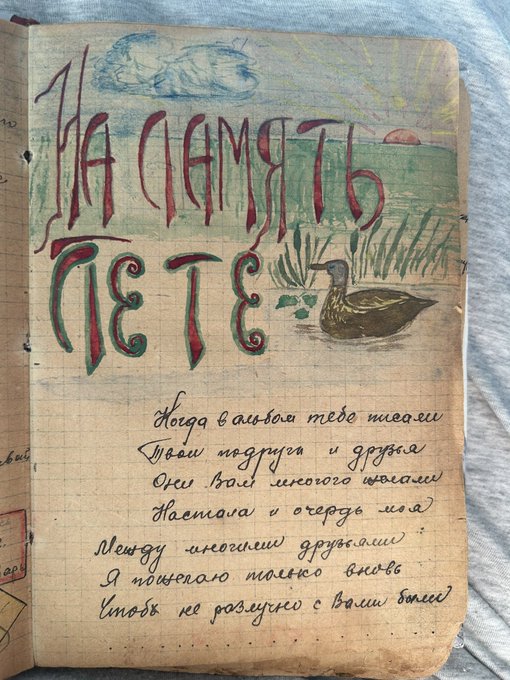 НА ПАМЯТЬ
ПЕТЕ
Когда в альбом тебе писали
Твои подруги и друзья
Они Вам многого желали
Настала и очердь моя
Между многими друзьями
Я пожелаю только вновь
Чтобы не разлучно с Вами были